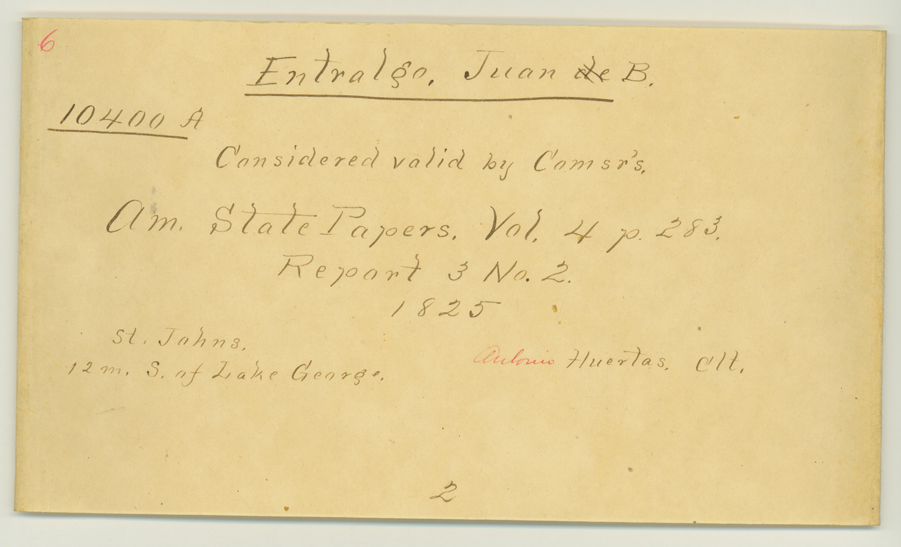 6
Entralgo, Juan de B.
10400 A
Considered valid by Comsr's.
Am. State Papers. Vol. 4 p. 283.
Report 3 No. 2.
1825
St. Johns.
12 m. S. of Lake George.
Antonio Huertas. Clt.
2